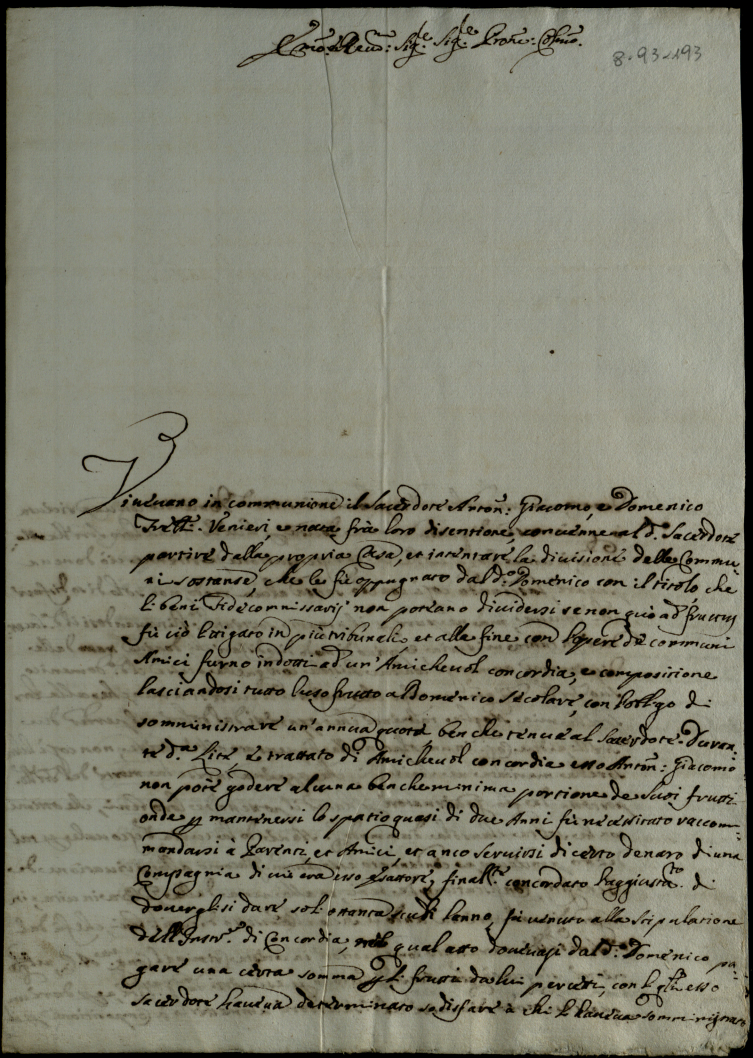 Emo: e Reuo: Sig:re Sig:re Prone: Colmo:
8-93-193
Viueuano in communione il Sacerdote Anton: Giacomo, e Domenico
Fretti: Venieri, e nata frà loro disentione, conuenne al d.o Sacerdote
partire dalla propria Casa, et intentare la diuisione delle Commu-
ni sostanze, che le fù oppugnato dal d.o Domenico con il titolo che
li beni Fidecommissarij non poteano diuidersi se non quò ad fructus
fù ciò litigato in più tribunali et alla fine con l'opere de communi
Amici furno indotti ad un' Amicheuol concordia, e compositione
lasciandosi tutto l'usofrutto a Domenico secolare, con l'obligo di
somministrare un'annua quota benche tenue al Sacerdote. Duran-
te d.a Lite e trattato di Amicheuol concordia esso Anton: Giacomo
non potè godere alcuna benche minima portione de Suoi frutti
onde p mantenersi lo spatio quasi di due Anni fù necessitato raccom-
mandarsi à Parenti, et Amici, et anco seruirsi di certo denaro di una
Compagnia di cui era esso esattore; finalm.te concordato l'aggiustam.to di
douerglisi dare soli ottanta scudi l'anno, fù uenuto alla Stipulatione
dell'Instr.o di Concordia, nel qual atto doueuasi dal d.o Domenico pa-
gare una certa somma p li frutti da lui percetti, con li quali esso
Sacerdote haueua determinato sodisfare à chi li haueua somministrato